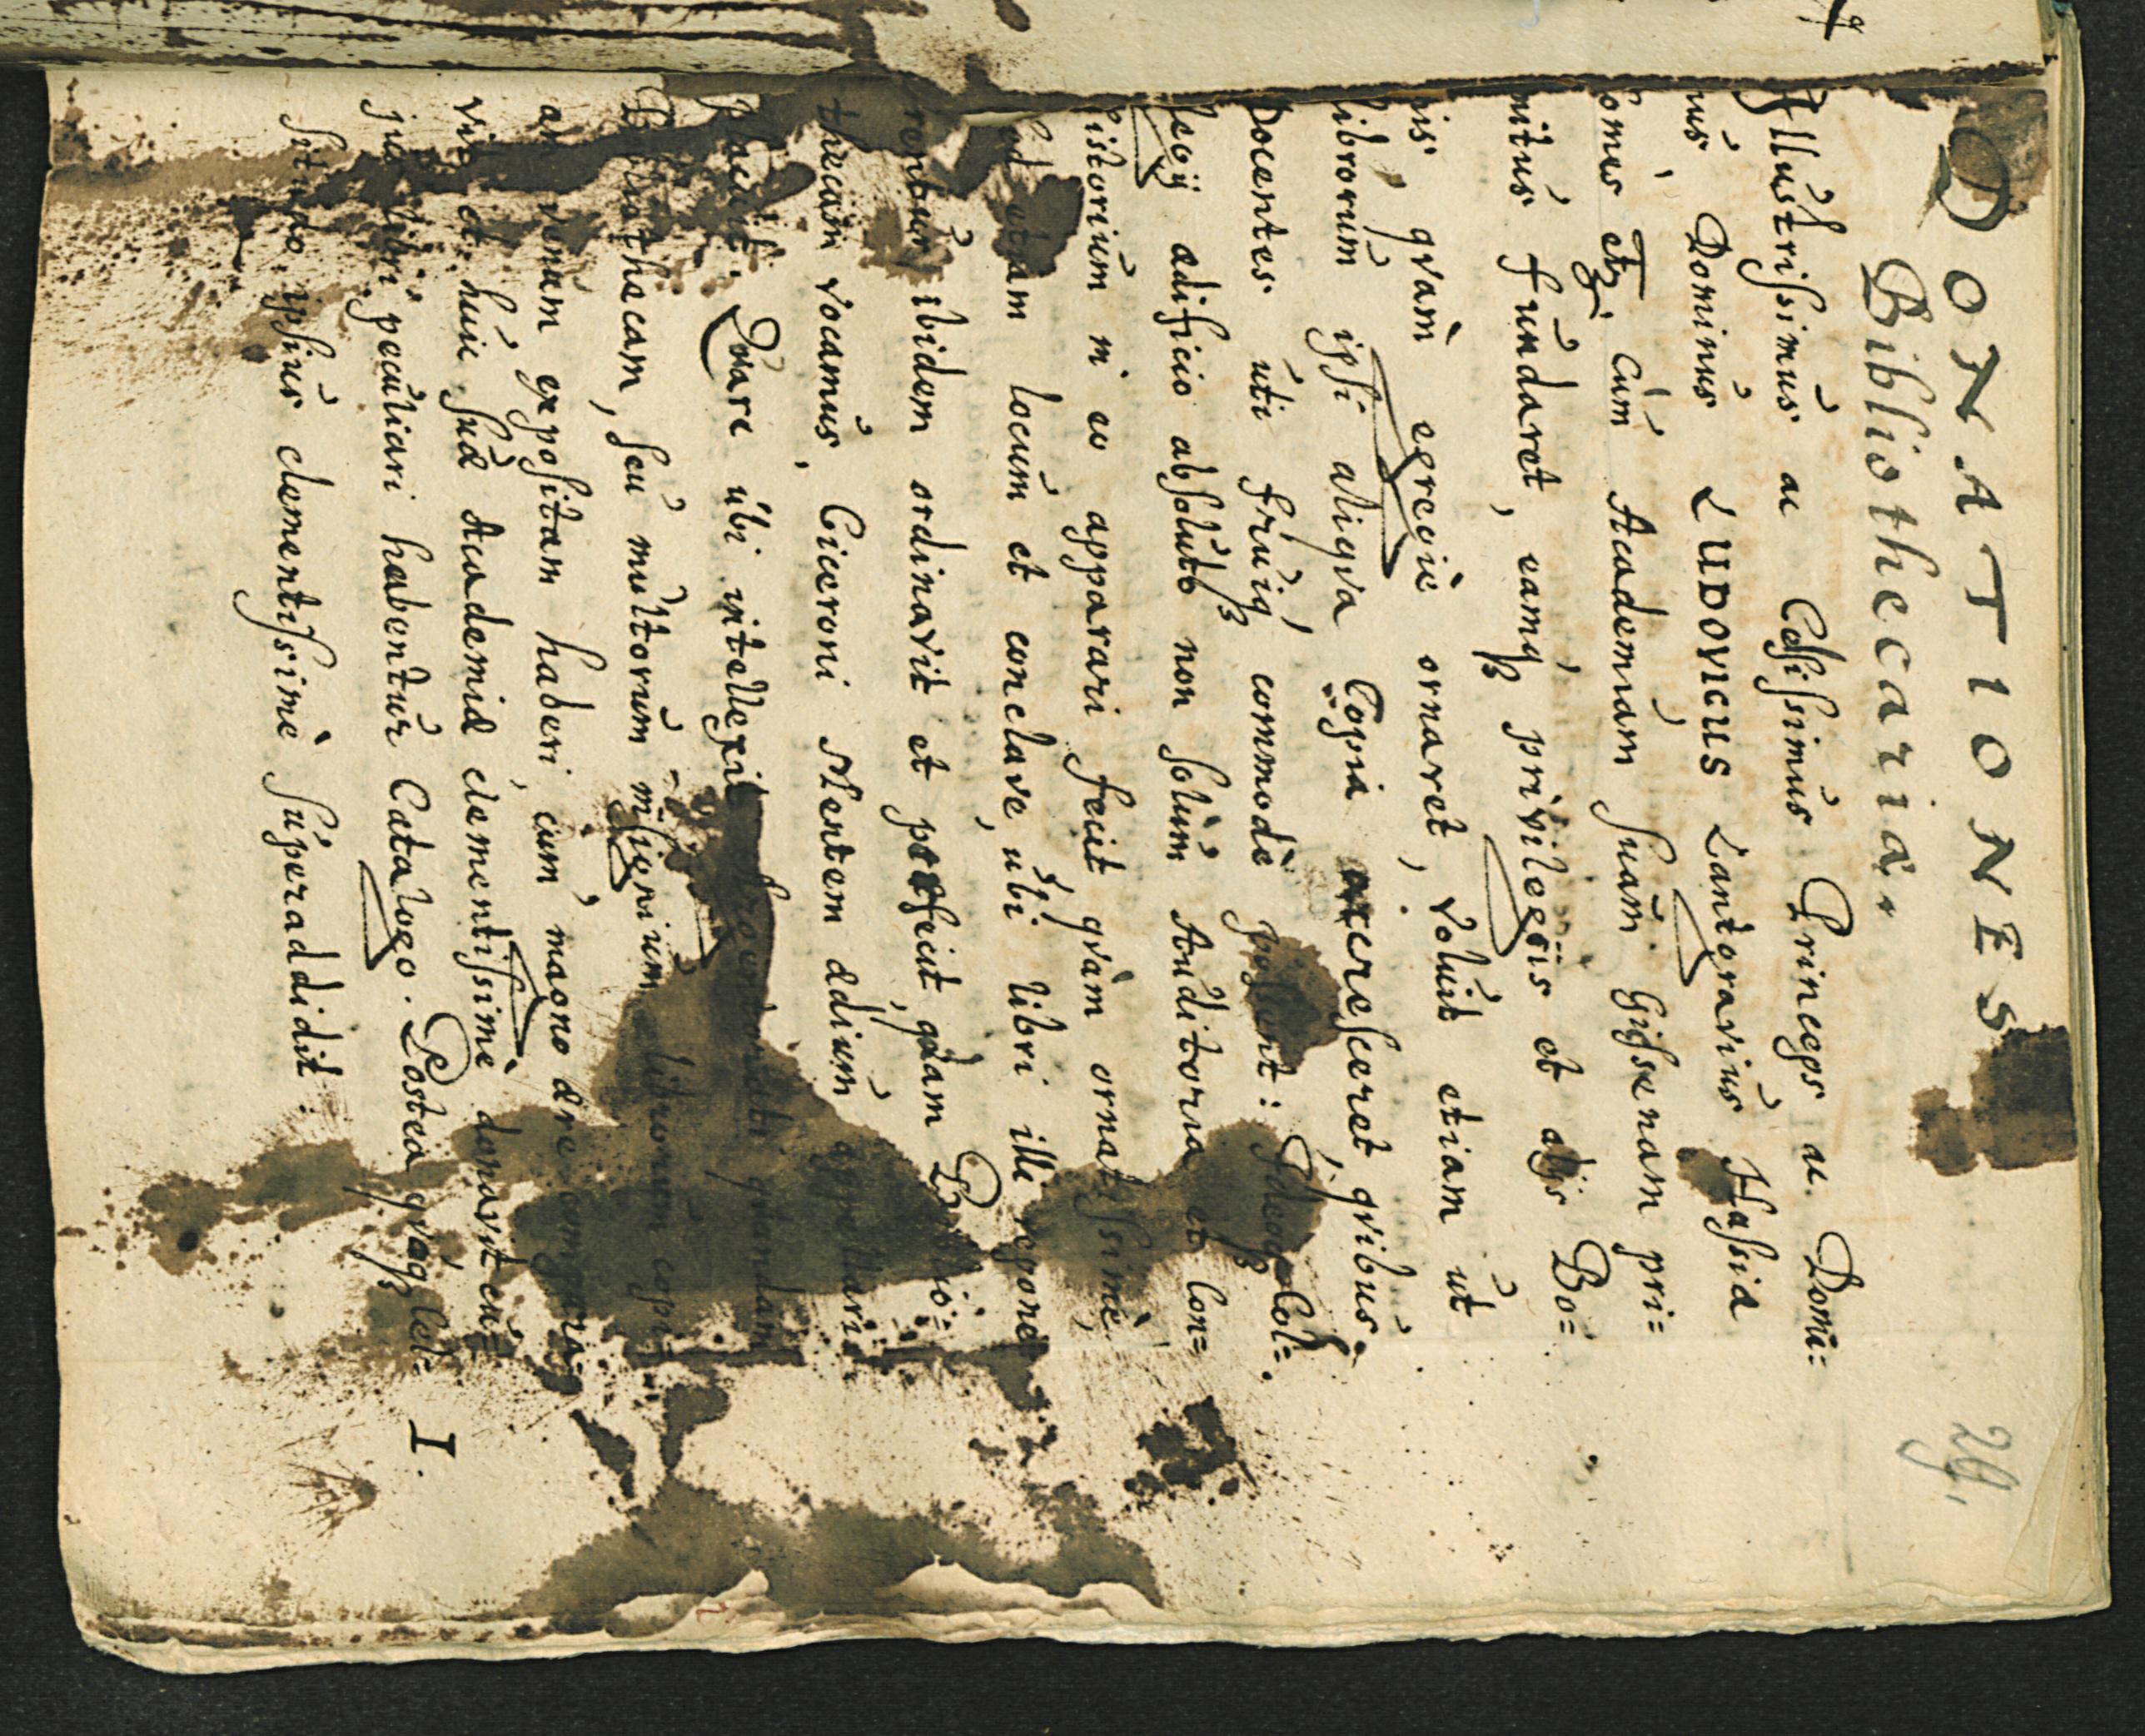 29.
DONATIONES
Bibliothecariæ.
Illustrissimus ac Celsissimus Princeps ac Domi=
nus, Dominus LUDOVICUS Lantgravius Hassiæ
Comes etc. cùm Academiam suam Gissenam pri=
mitùs fundaret, eamq; privilegiis et alijs Bo=
nis, qvàm egregiè ornaret, voluit etiam ut
librorum ipsi aliqva Copia accresceret, qvibus
Docentes uti fruiq; commodè possent: Ideoq; Col=
legij ædificio absoluto non solùm Auditoria et Con=
sistorium in eo apparari fecit qvàm ornatissimè,
sed etiam locum et conclave, ubi libri ille
ibidem ordinavit et perfecit, qvàm
thecam vocamus, Ciceroni Mentem ædium appellari
placuit. Qvare ubi intellexit qvandam
Bibliothecam, seu multorum insignium librorum
venum expositam haberi, eam magno ære
vit et huic suæ Academiæ clementissimè donavit
libri peculiari habentur Catalogo. Posteà qvàq; lel=
ipsius clementissimè superaddidit.
I.